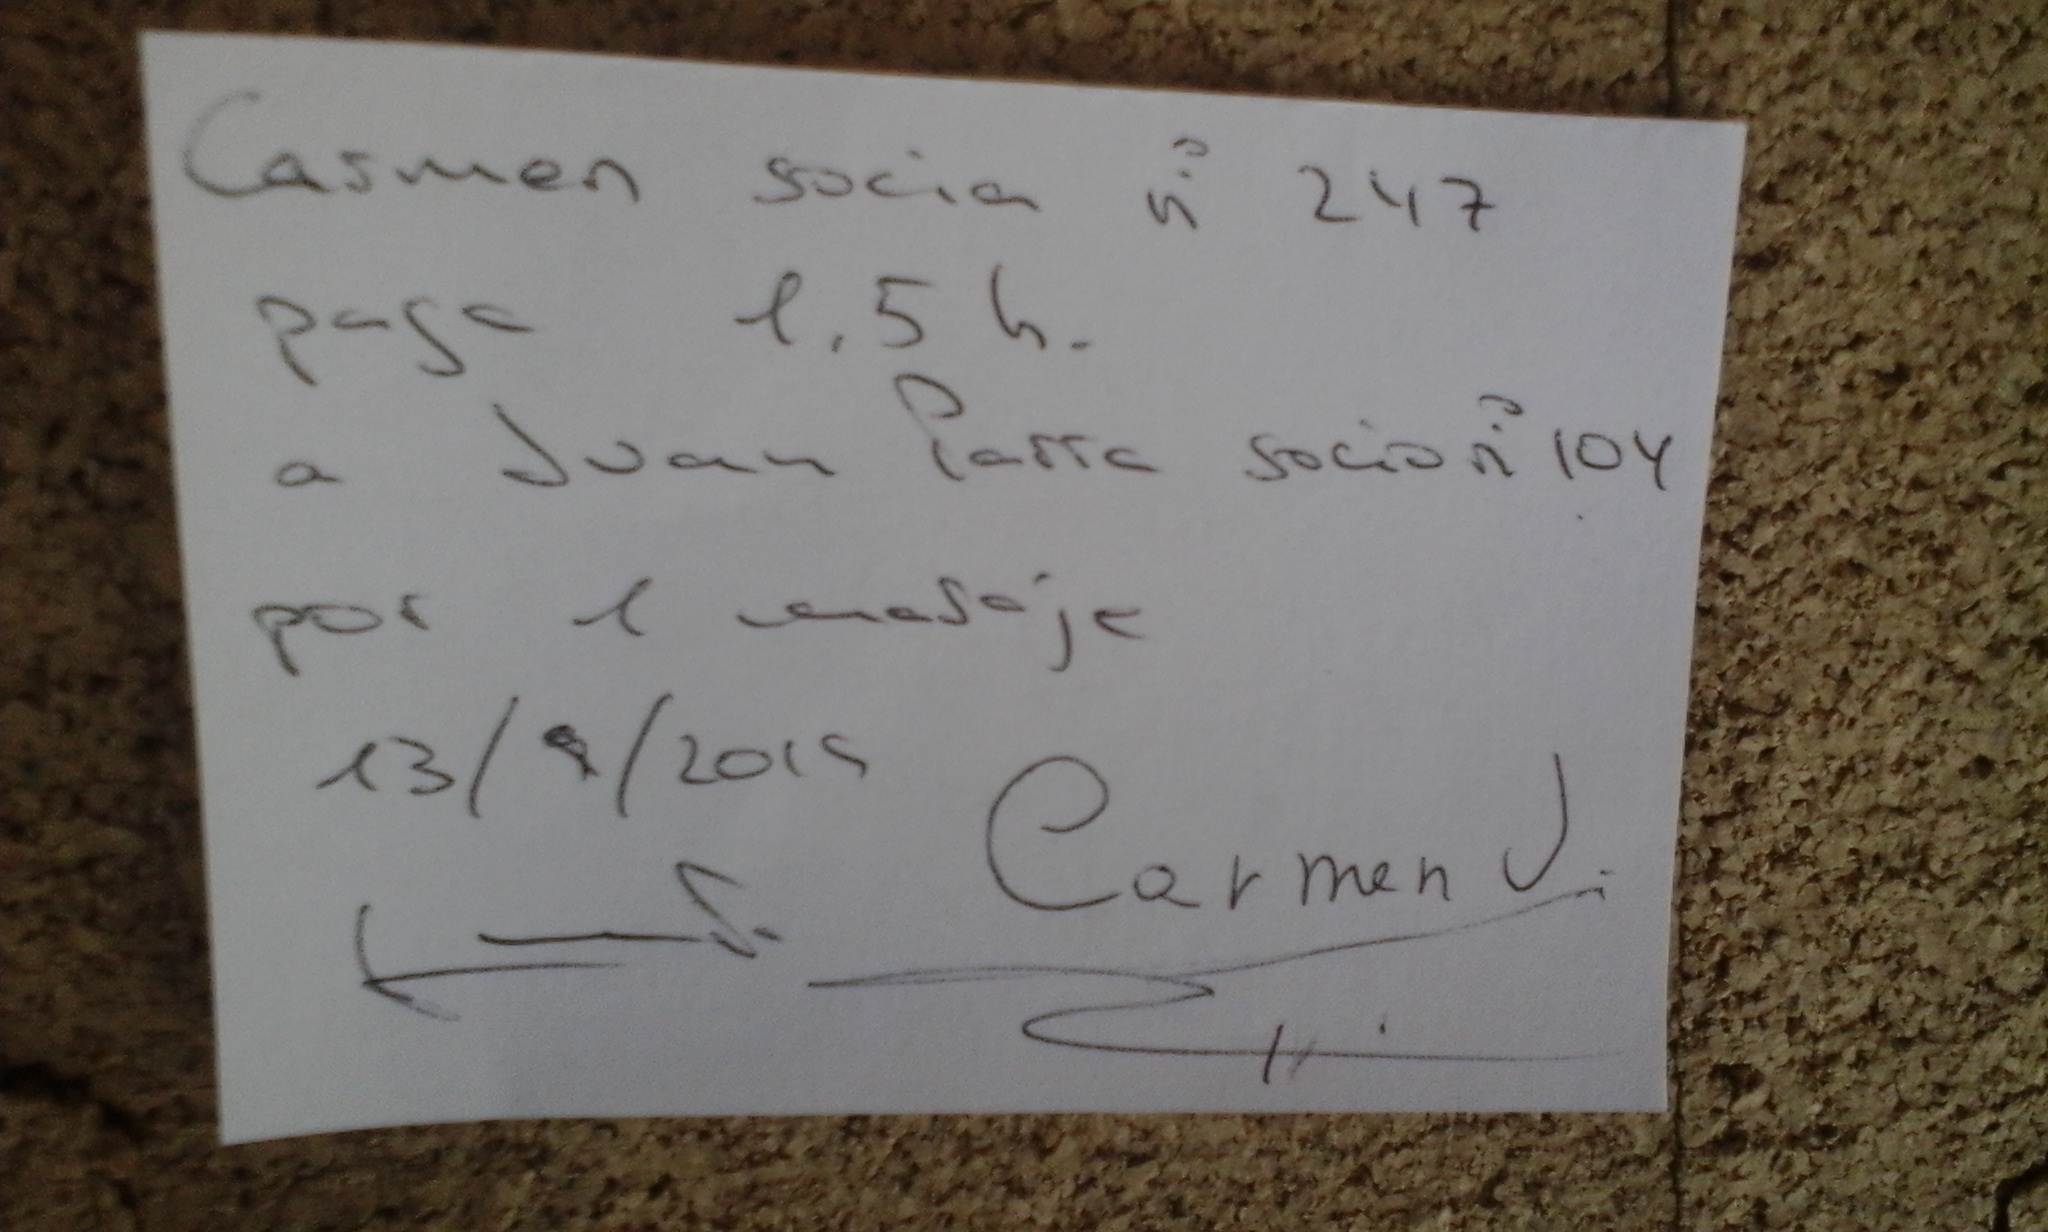 Carmen socia nº 247
paga 1,5 h.
a Juan Parra socio nº 104
por 1 masaje
13/9/2015
Carmen J.